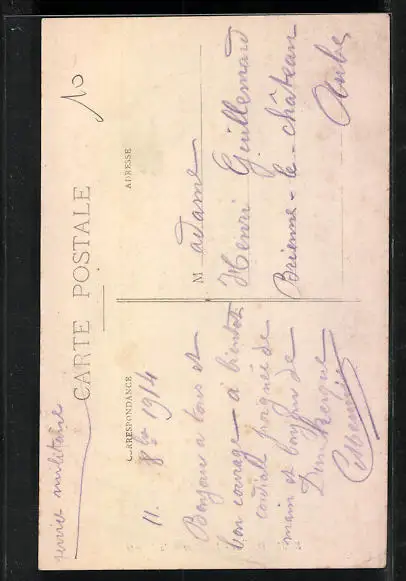 service militaire
CARTE POSTALE
10
CORRESPONDANCE
ADRESSE
11. 8bre 1914
Bonjour a tous et
bon courage – à bientôt
cordiale poignée de
main et bonjour de
Dunkerque
Madame
Henri Guillemard
Brienne-le-château
Aube